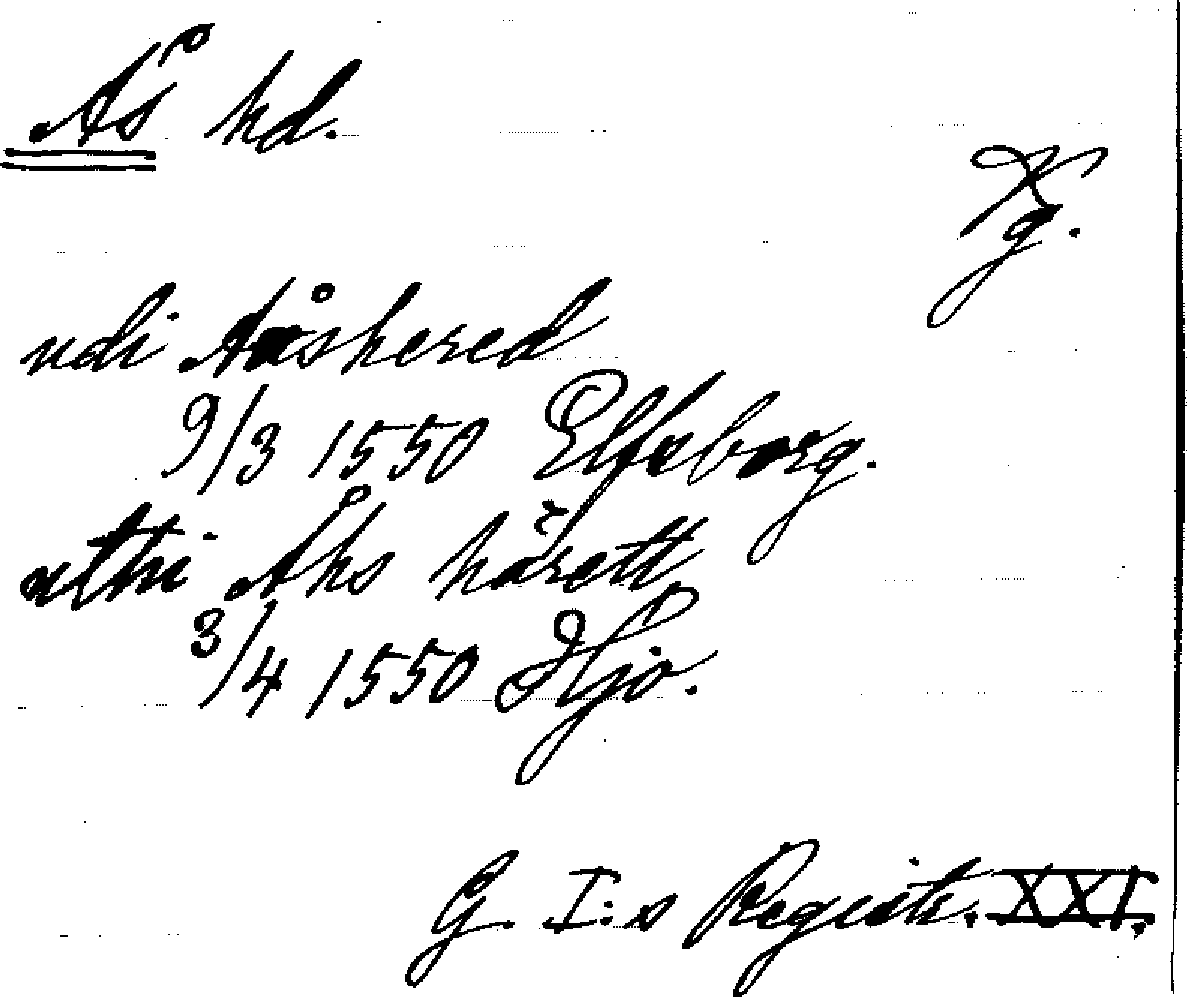 Ås hd.
Vg.
udi Aåshered
9/3 1550 Elfsborg.
uthi Åhs härett
3/4 1550 Hjo.
G. I:s Registr. XXI.